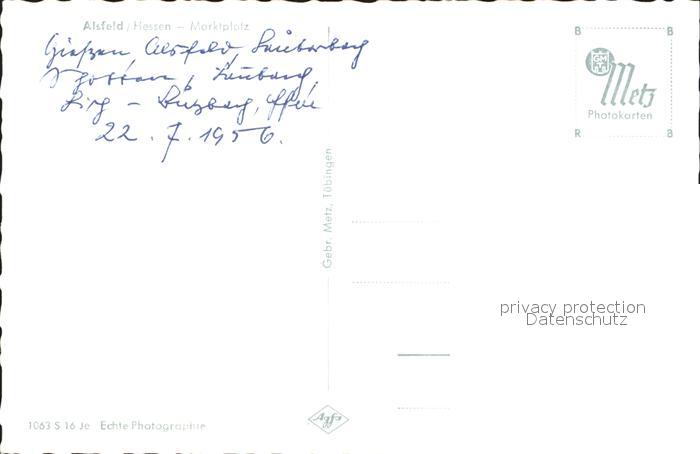 Alsfeld / Hessen – Marktplatz
Gießen, Alsfeld, Lauterbach
Schotten, Laubach,
Lich – Butzbach, Ffm
22. 7. 1956.
B B
GM
Metz
Photokarten
R B
Gebr. Metz, Tübingen
privacy protection
Datenschutz
1063 S 16 Je Echte Photographie
Agfa